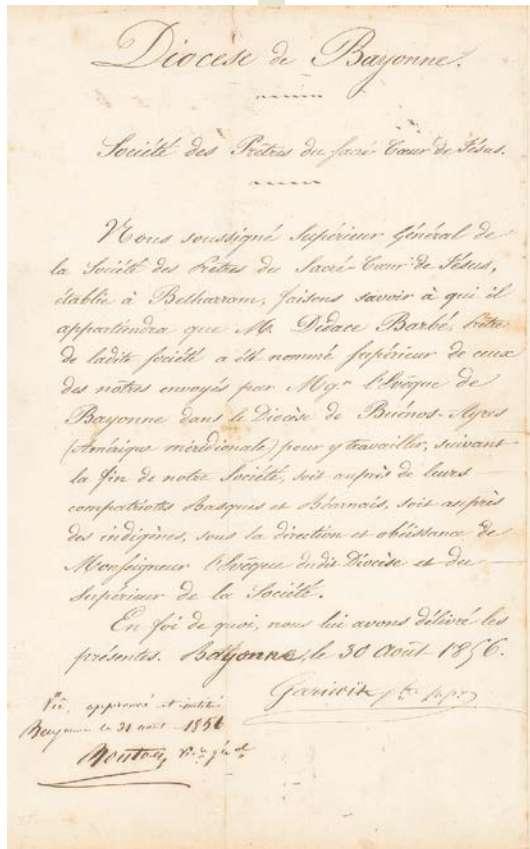 Diocèse de Bayonne.
Société des Prêtres du Sacré Cœur de Jésus.
Nous soussigné Supérieur Général de
la Société des Prêtres du Sacré-Cœur de Jésus,
établie à Betharram, faisons savoir à qui il
appartiendra que M. Didace Barbé, Prêtre
de ladite société a été nommé Supérieur de ceux
des nôtres envoyés par Mgr l'Evêque de
Bayonne dans le Diocèse de Buénos-Ayres
(Amérique méridionale) pour y travailler, suivant
la fin de notre Société, soit auprès de leurs
compatriotes Basques et Béarnais, soit auprès
des indigènes, sous la direction et obéissance de
Monseigneur l'Evêque dudit Diocèse et du
Supérieur de la Société.
En foi de quoi, nous lui avons délivré les
présentes. Bayonne, le 30 Août 1856.
Garicoïts ptre supr
Vu, approuvé et
Bayonne le 31 août 1856
vic. gén.